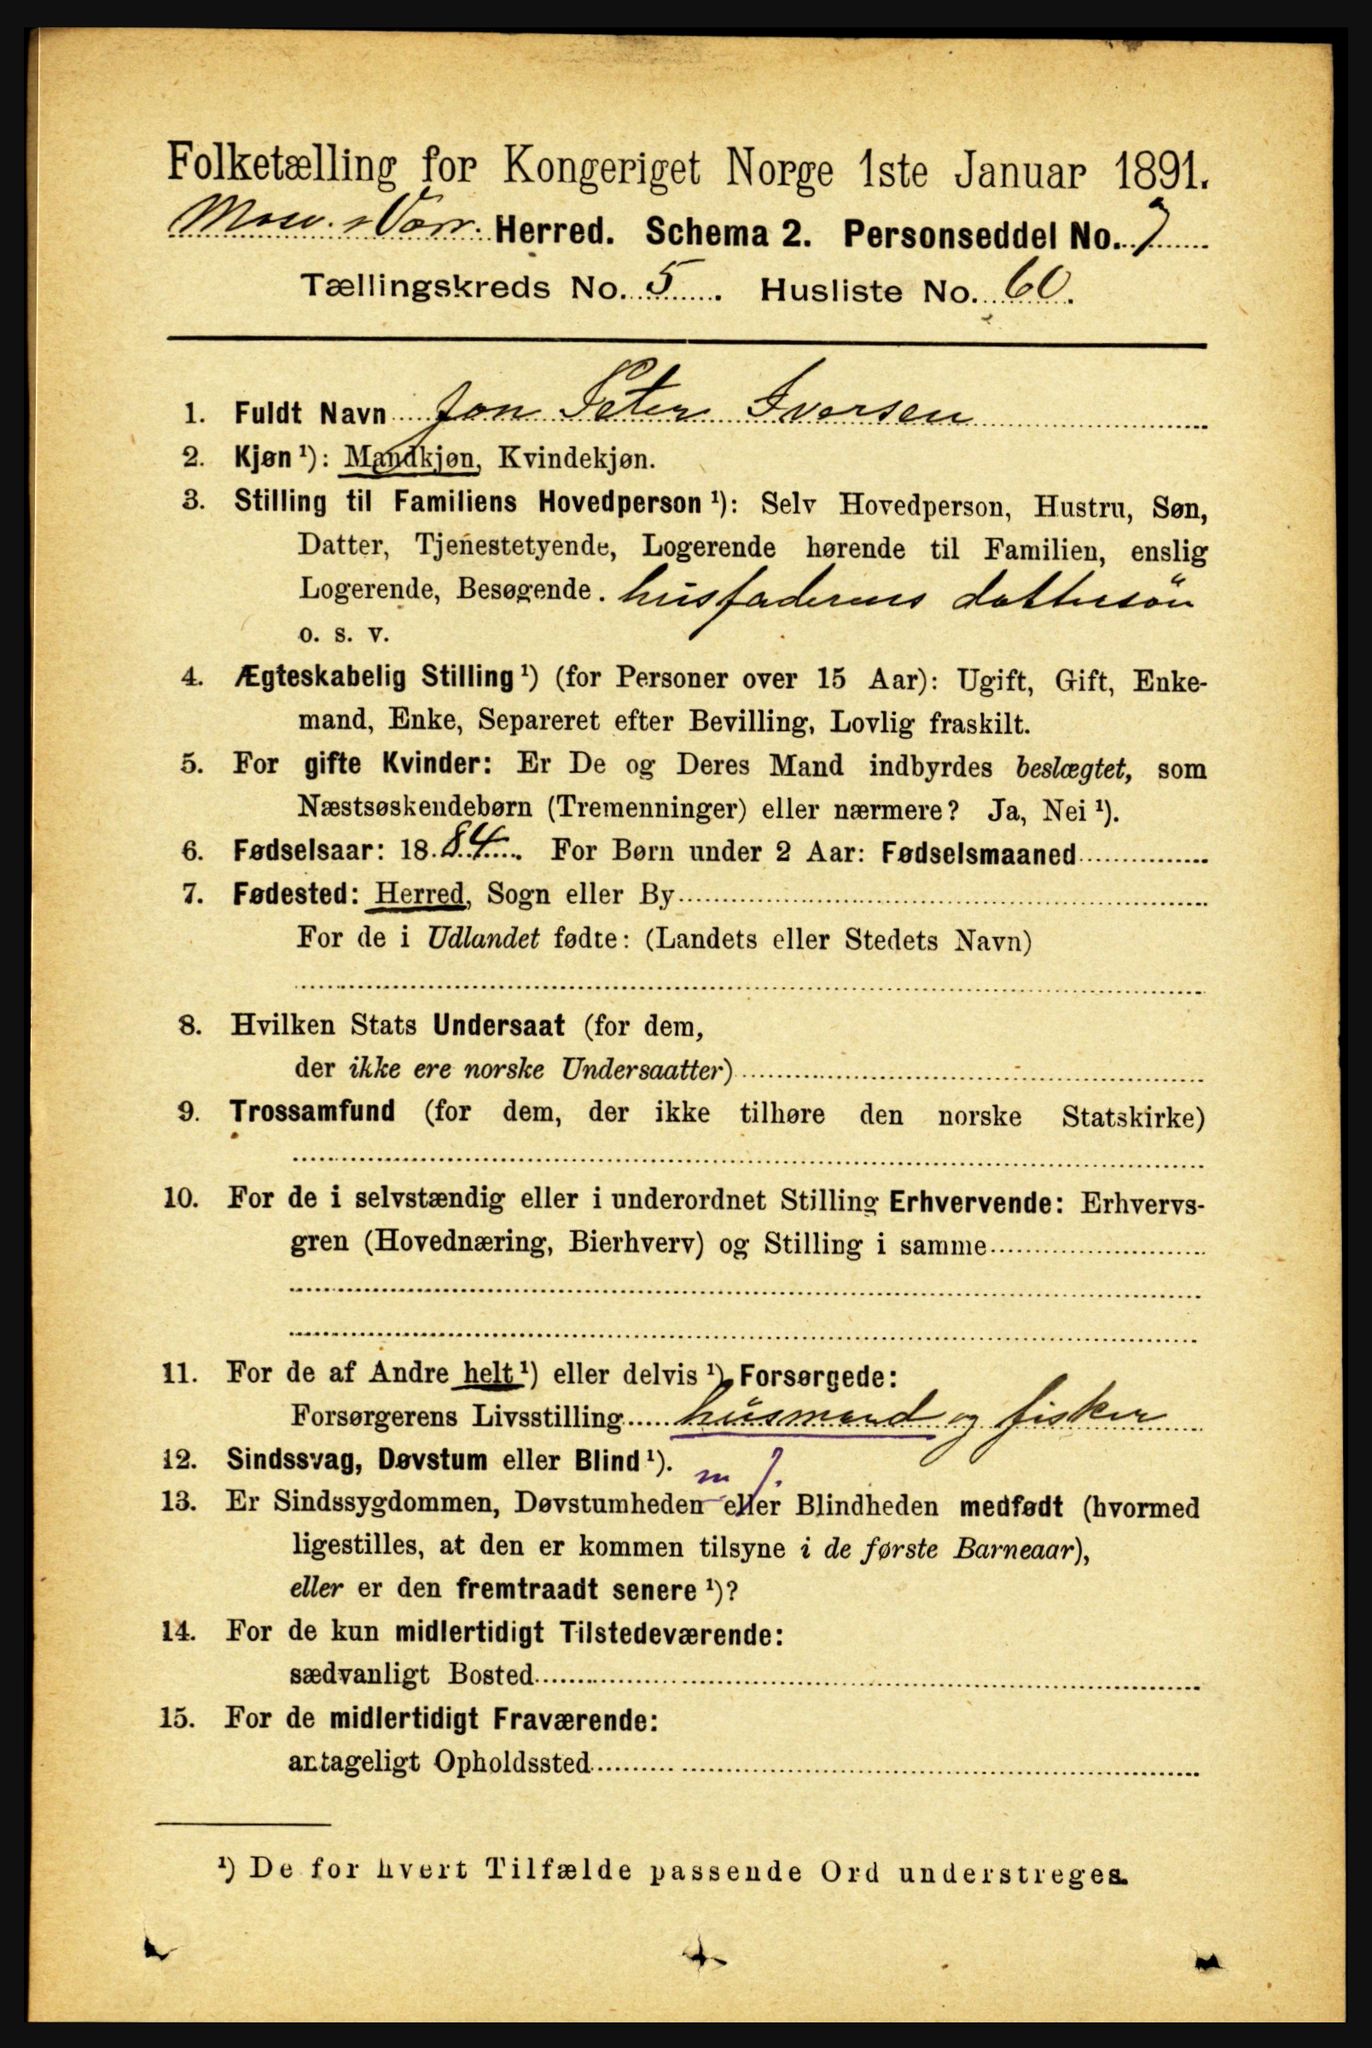 Folketælling for Kongeriget Norge 1ste Januar 1891.
Herred. Schema 2. Personseddel No. 7
Tællingskreds No. 5. Husliste No. 60.
1. Fuldt Navn Jon Peter Iversen
2. Kjøn ¹): Mandkjøn, Kvindekjøn.
3. Stilling til Familiens Hovedperson ¹): Selv Hovedperson, Hustru, Søn,
Datter, Tjenestetyende, Logerende hørende til Familien, enslig
Logerende, Besøgende. husfaderens dattersön
o. s. v.
4. Ægteskabelig Stilling ¹) (for Personer over 15 Aar): Ugift, Gift, Enke-
mand, Enke, Separeret efter Bevilling, Lovlig fraskilt.
5. For gifte Kvinder: Er De og Deres Mand indbyrdes beslægtet, som
Næstsøskendebørn (Tremenninger) eller nærmere? Ja, Nei ¹).
6. Fødselsaar: 1884. For Børn under 2 Aar: Fødselsmaaned
7. Fødested: Herred, Sogn eller By
For de i Udlandet fødte: (Landets eller Stedets Navn)
8. Hvilken Stats Undersaat (for dem,
der ikke ere norske Undersaatter)
9. Trossamfund (for dem, der ikke tilhøre den norske Statskirke)
10. For de i selvstændig eller i underordnet Stilling Erhvervende: Erhvervs-
gren (Hovednæring, Bierhverv) og Stilling i samme
11. For de af Andre helt ¹) eller delvis ¹) Forsørgede:
Forsørgerens Livsstilling husmand og fisker
12. Sindssvag, Døvstum eller Blind ¹).
13. Er Sindssygdommen, Døvstumheden eller Blindheden medfødt (hvormed
ligestilles, at den er kommen tilsyne i de første Barneaar),
eller er den fremtraadt senere ¹)?
14. For de kun midlertidigt Tilstedeværende:
sædvanligt Bosted
15. For de midlertidigt Fraværende:
antageligt Opholdssted
¹) De for hvert Tilfælde passende Ord understreges.